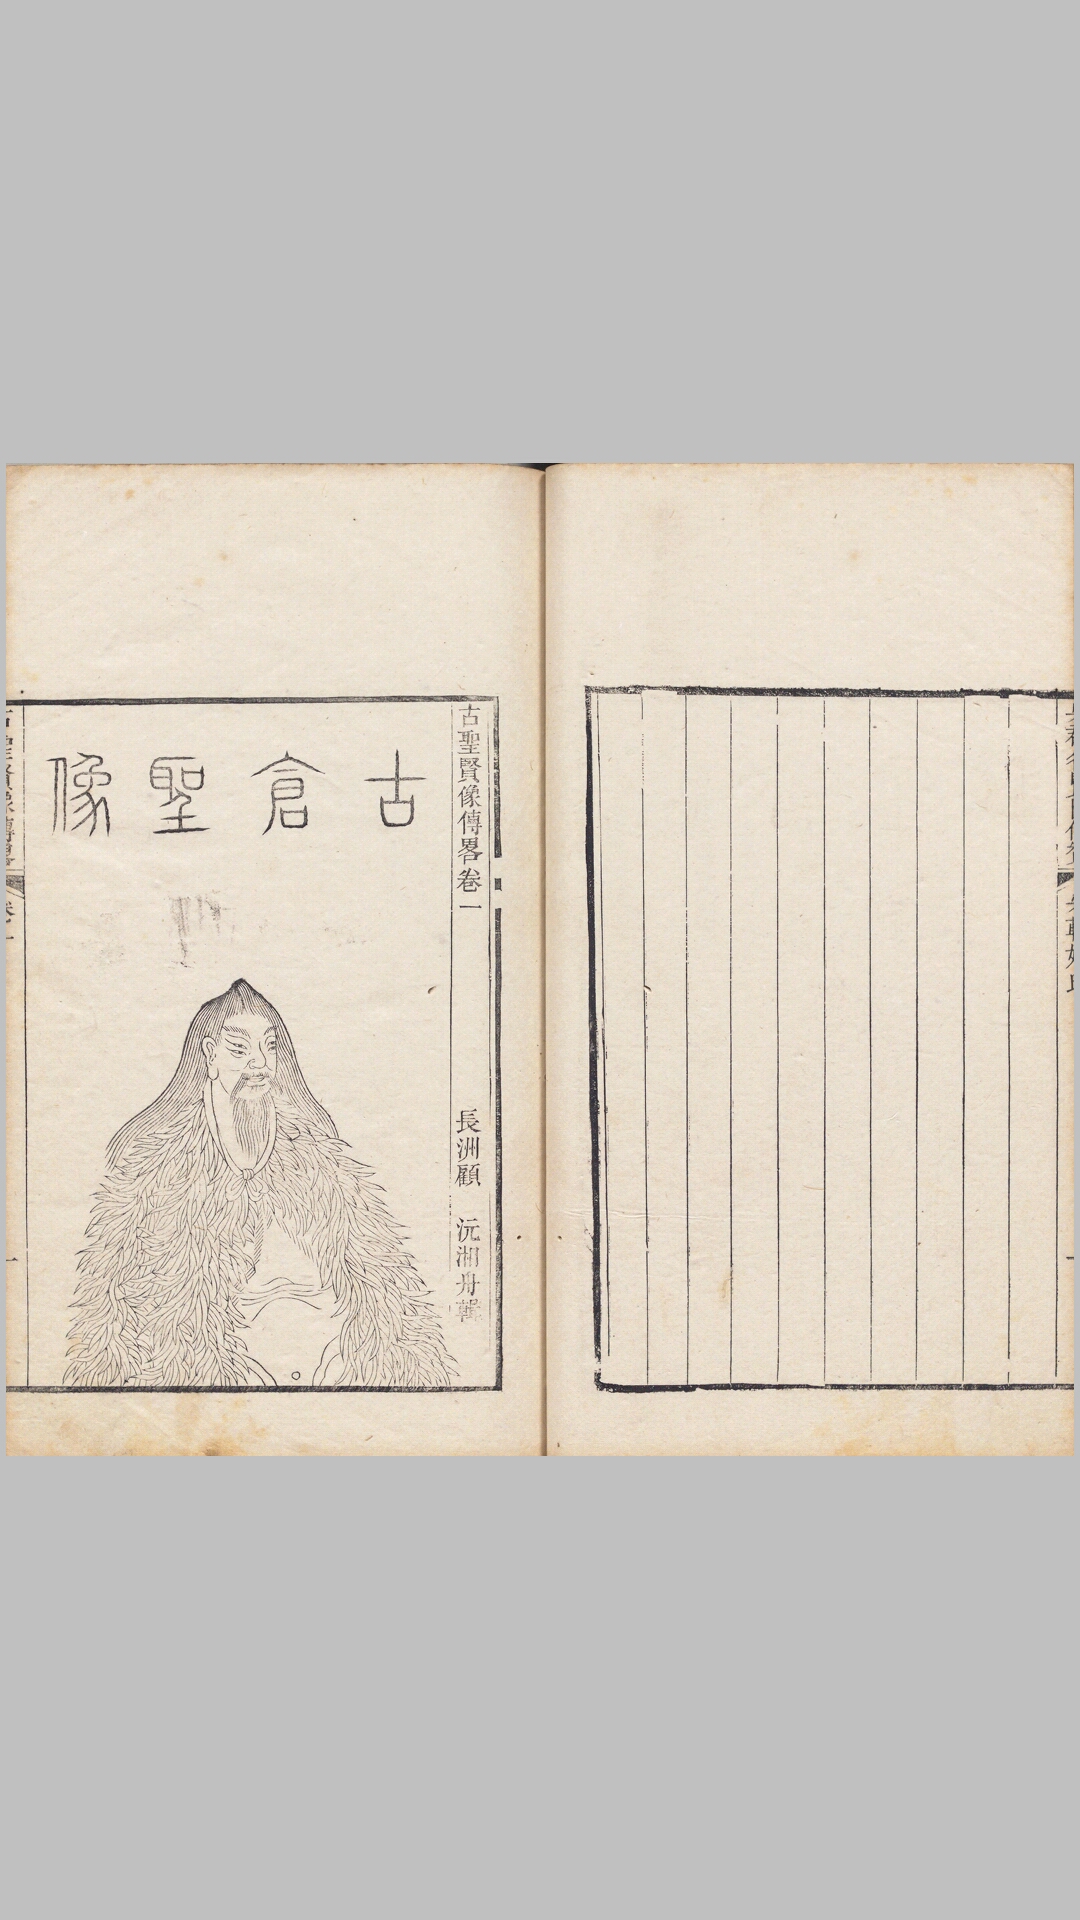 古聖賢像傳畧卷一
長洲顧　沅湘舟輯
古倉聖像